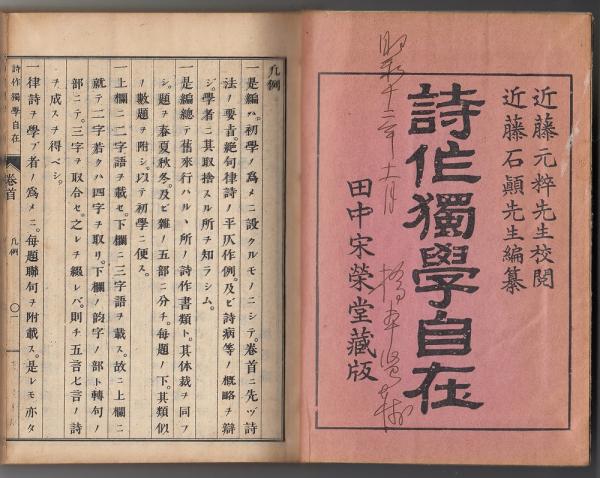 近藤元粹先生校閲
近藤石顚先生編纂
詩作獨學自在
田中宋榮堂藏版
昭和十二年十一月
凡例
一是編ハ。初學ノ爲メニ設クルモノニシテ。卷首ニ先ヅ詩
法ノ要旨。絕句律詩ノ平仄作例。及ビ詩病等ノ槪略ヲ辯
ジ。學者ニ其取捨スル所ヲ知ラシム。
一是編總テ舊來行ハルヽ所ノ詩作書類ト。其体裁ヲ同フ
シ。題ヲ春夏秋冬。及ビ雜ノ五部ニ分チ。每題ノ下。其類似
ノ數題ヲ附シ。以テ初學ニ便ス。
一上欄ニ二字語ヲ載セ。下欄ニ三字語ヲ載ス。故ニ上欄ニ
就テ二字若クハ四字ヲ取リ。下欄ノ韵字ノ部ト轉句ノ
部ニテ。三字ヲ取合セ。之レヲ綴レバ。則チ五言七言ノ詩
ヲ成スヲ得ベシ。
一律詩ヲ學ブ者ノ爲メニ。每題聯句ヲ附載ス。是レモ亦タ
詩作獨學自在
卷首
凡例
〇一